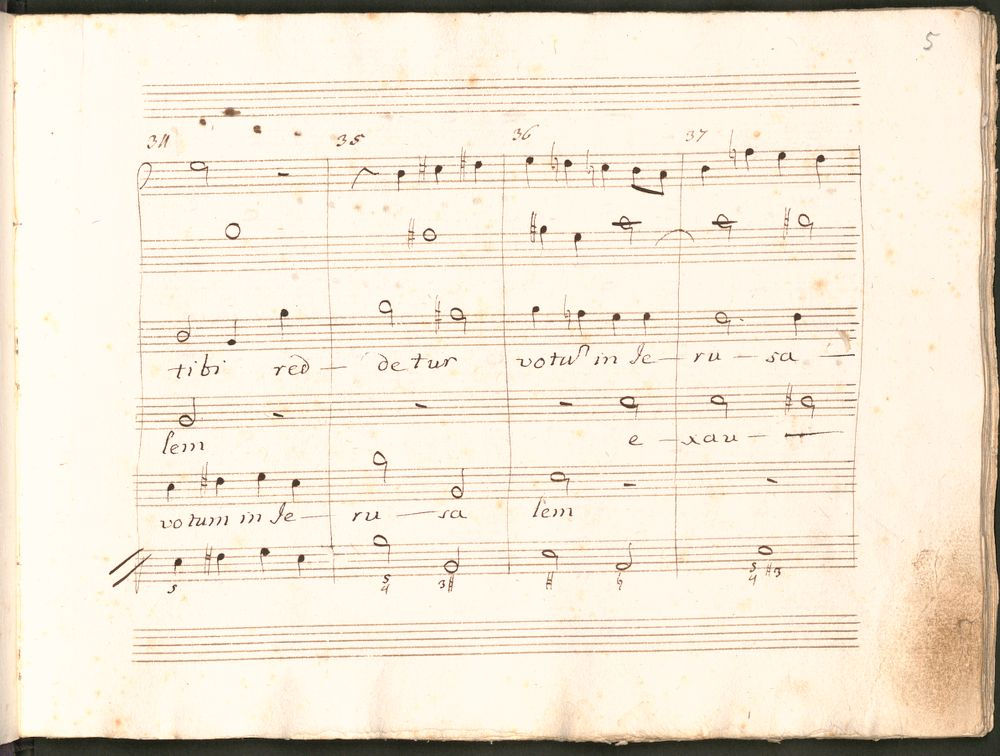 5
34 35 36 37
tibi red — detur votum in Je — ru — sa —
lem e — xau —
votum in Je — ru — sa lem
5 5 4 3# # ♮ 5 4 #3